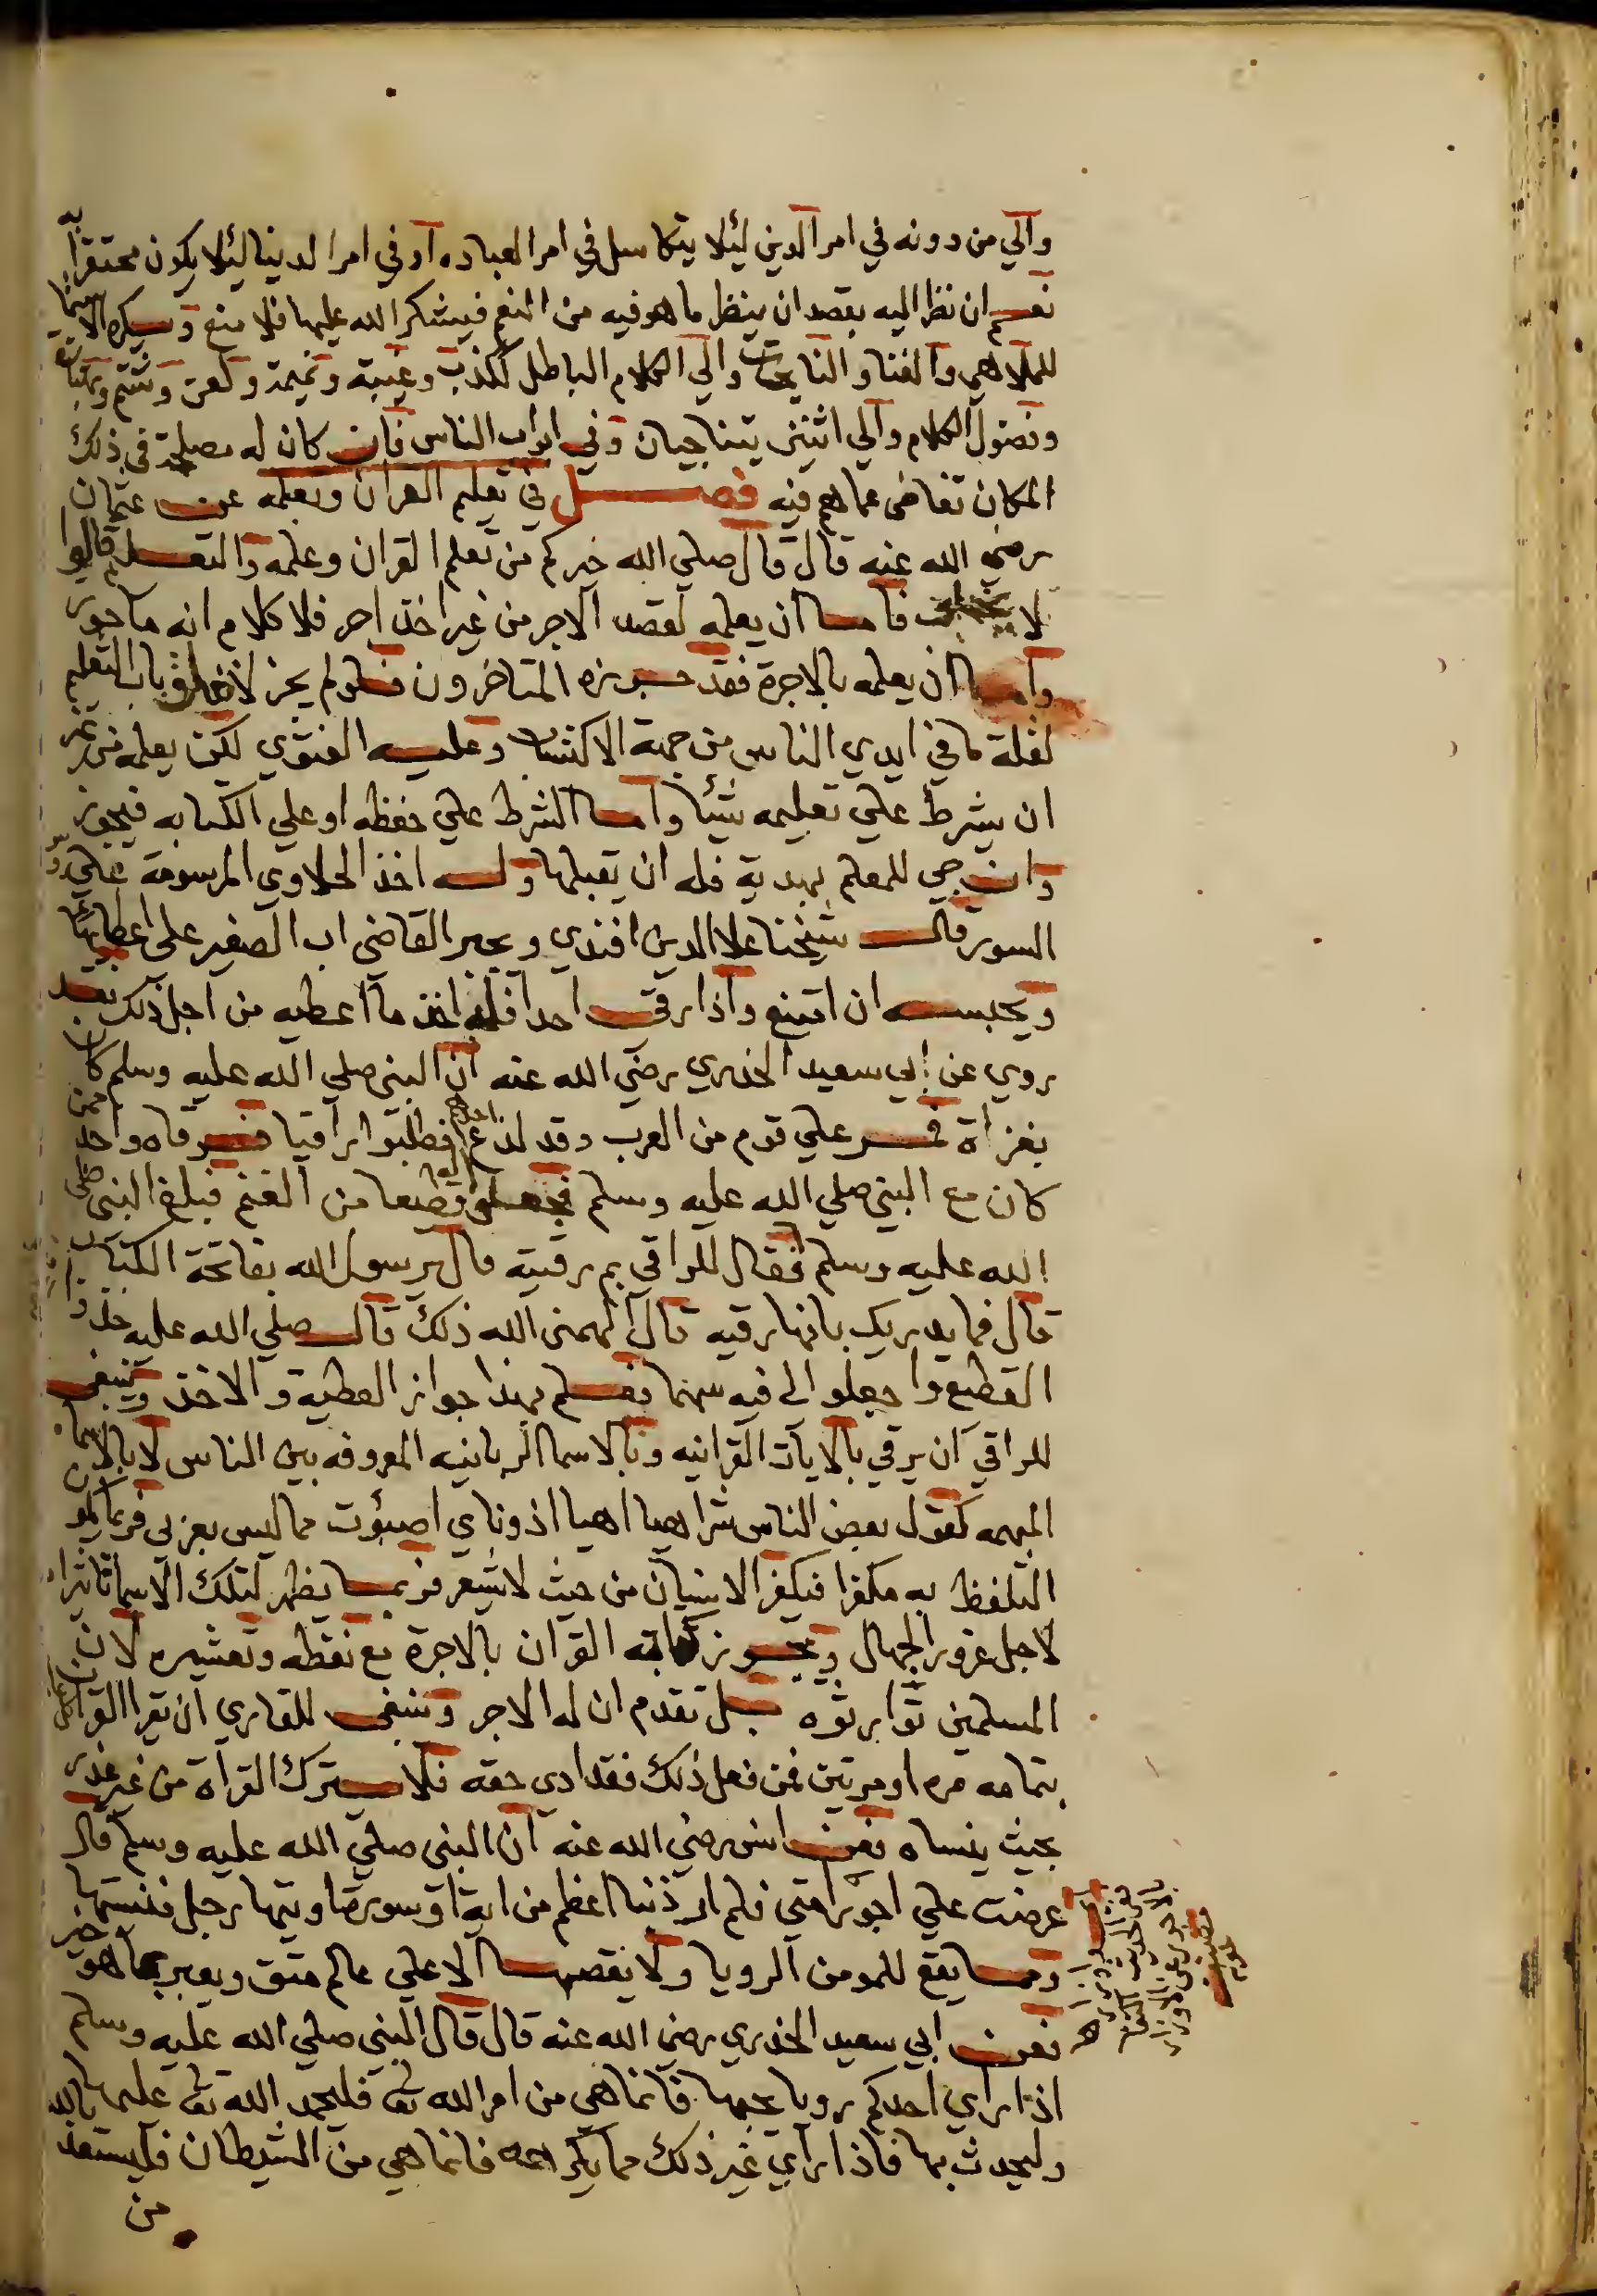 والي من دونه في امر الدين ليلا يتكاسل في امر العباده او في امر الدنيا ليلا يكون محتقرا به
نعم ان نظر اليه بقصد ان ينظر ما هو فيه من النعم فيشكر الله عليها فلا منع ويكره الاستماع
للملاهي والغنا والنايحات والي الكلام الباطل ككذب وغيبة ونميمة ولعن وشتم
وفضول الكلام والي اثنين يتناجيان وفي ابواب الناس فان كان له مصلحة في ذلك
المكان تغاضى عما هم فيه فصل في تعليم القران وتعلمه عن عثمان
رضي الله عنه قال قال صلي الله خيركم من تعلم القران وعلمه والتعلم قالوا
لا يخلو فاما ان يعلمه لقصد الاجر من غير اخذ اجر فلا كلام انه ماجور
واما ان يعلمه بالاجرة فقد جوزه المتاخرون فلو لم يجز لانغلق باب التعليم
لقلة ما في ايدي الناس من جهة الاكتساب وعليه الفتوي لكن يعلمه من غير
ان يشرط علي تعليمه شيا واما الشرط علي حفظه او علي الكتابه فيجوز
وان جي للمعلم بهدية فله ان يقبلها وله اخذ الحلاوي المرسومة علي
السور قال شيخنا علا الدين افندي ويجبر القاضي اب الصغير على اعطائها
ويحبسه ان امتنع واذا رقى احدا فله اخذ ما اعطيه من اجل ذلك فقد
روي عن ابي سعيد الخدري رضي الله عنه ان النبي صلي الله عليه وسلم كان
بغزاة فمر علي قوم من العرب وقد لدغ احدهم فطلبوا راقيا فرقاه واحد ممن
كان مع النبي صلي الله عليه وسلم فجعلوا له قطيعا من الغنم فبلغ النبي صلى
الله عليه وسلم فقال للراقي بم رقيته قال يرسول الله بفاتحة الكتاب
قال فما يدريك بانها رقيه قال الهمني الله ذلك قال صلي الله عليه خذوا
القطيع واجعلوا لي فيه سهما فعلم بهذا جواز العطية والاخذ وينبغي
للراقي ان يرقي بالايات القرانيه وبالاسما الربانيه المعروفه بين الناس لا بالاسماء
المبهمه كقول بعض الناس شراهيا اهيا اذوناي اصبؤت مما ليس بعربي فربما يكون
التلفظ به مكفرا فيكفر الانسان من حيث لا شعر فربما يظهر لتلك الاسما تاثيرا
لاجل غرور الجهال ويجوز كتابة القران بالاجرة مع نقطه وتعشيره لان
المسلمين توارثوه بل تقدم ان له الاجر وينبغي للقاري ان يقرا القران
بتمامه مره او مرتين فمن فعل ذلك فقد ادي حقه فلا يترك القراة من غير عذر
بحيث ينساه فعن انس رضي الله عنه ان النبي صلي الله عليه وسلم قال
عرضت علي اجور امتي فلم ار ذنبا اعظم من اية او سورة اوتيها رجل فنسيها
ومما يقع للمومن الرويا ولا يقصها الا علي عالم متق ويعبر بما هو خير
فعن ابي سعيد الخدري رضي الله عنه قال قال النبي صلي الله عليه وسلم
اذا راي احدكم رويا يحبها فانما هي من امر الله تع فليحمد الله تع عليها
وليحدث بها فاذا راي غير ذلك مما يكرهه فانما هي من الشيطان فليستعذ بالله
من